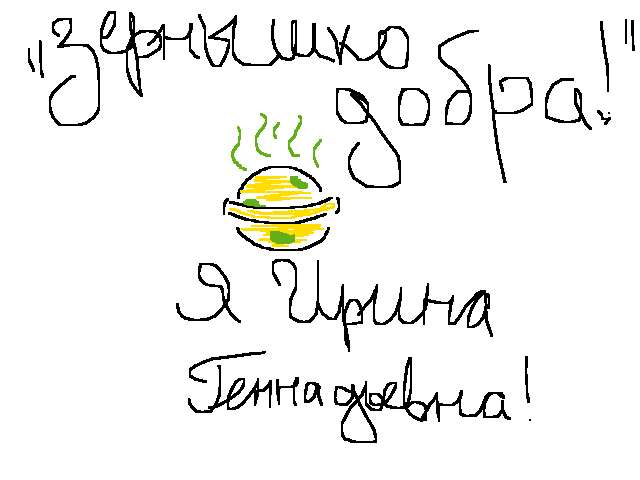 "Зернышко
добра!"
Я Ирина
Геннадьевна!